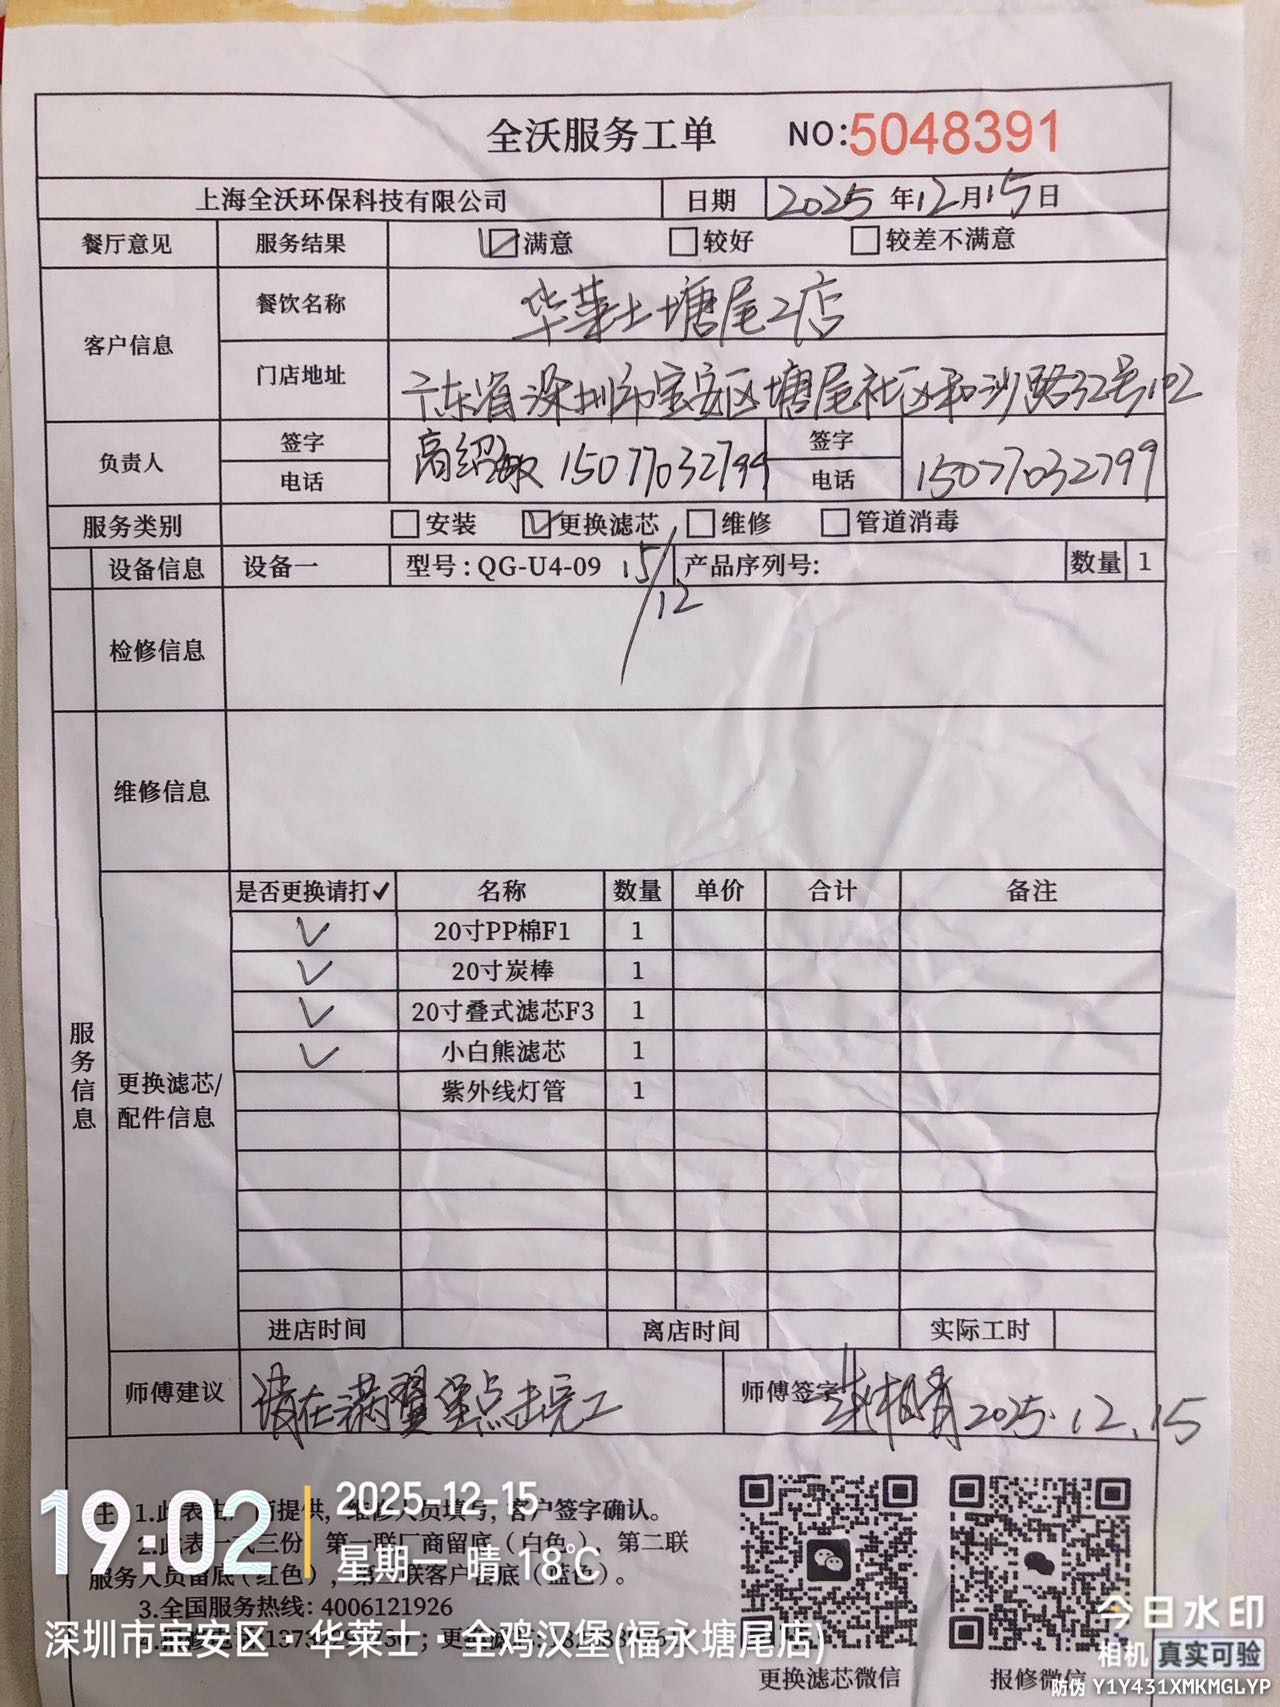 全沃服务工单 NO:5048391
上海全沃环保科技有限公司 日期 2025年12月15日
餐厅意见 服务结果 满意 较好 较差不满意
客户信息 餐饮名称 华莱士塘尾2店
门店地址 广东省深圳市宝安区塘尾社区和沙路32号102
负责人 签字 高绍敏 15077032799 签字
电话 电话 15077032799
服务类别 安装 更换滤芯 维修 管道消毒
设备信息 设备一 型号:QG-U4-09 15/12 产品序列号: 数量 1
检修信息
维修信息
是否更换请打✓ 名称 数量 单价 合计 备注
✓ 20寸PP棉F1 1
✓ 20寸炭棒 1
✓ 20寸叠式滤芯F3 1
✓ 小白熊滤芯 1
紫外线灯管 1
服务信息
更换滤芯/
配件信息
进店时间 离店时间 实际工时
师傅建议 请在满翼堡点击完工 师傅签字 2025.12.15
注 1.此表生厂商提供,维修人员填写,客户签字确认。
2.此表一式三份 第一联厂商留底(白色)、第二联
服务人员留底(红色),第三联客户留底(蓝色)。
3.全国服务热线:4006121926
更换滤芯微信 报修微信
19:02 2025-12-15
星期一 晴 18℃
深圳市宝安区·华莱士·全鸡汉堡(福永塘尾店)
今日水印
相机 真实可验
防伪 Y1Y431XMKMGLYP